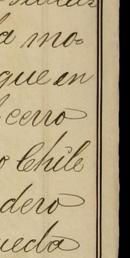 a mo-
que en
cerro
o Chile
dero
ueda